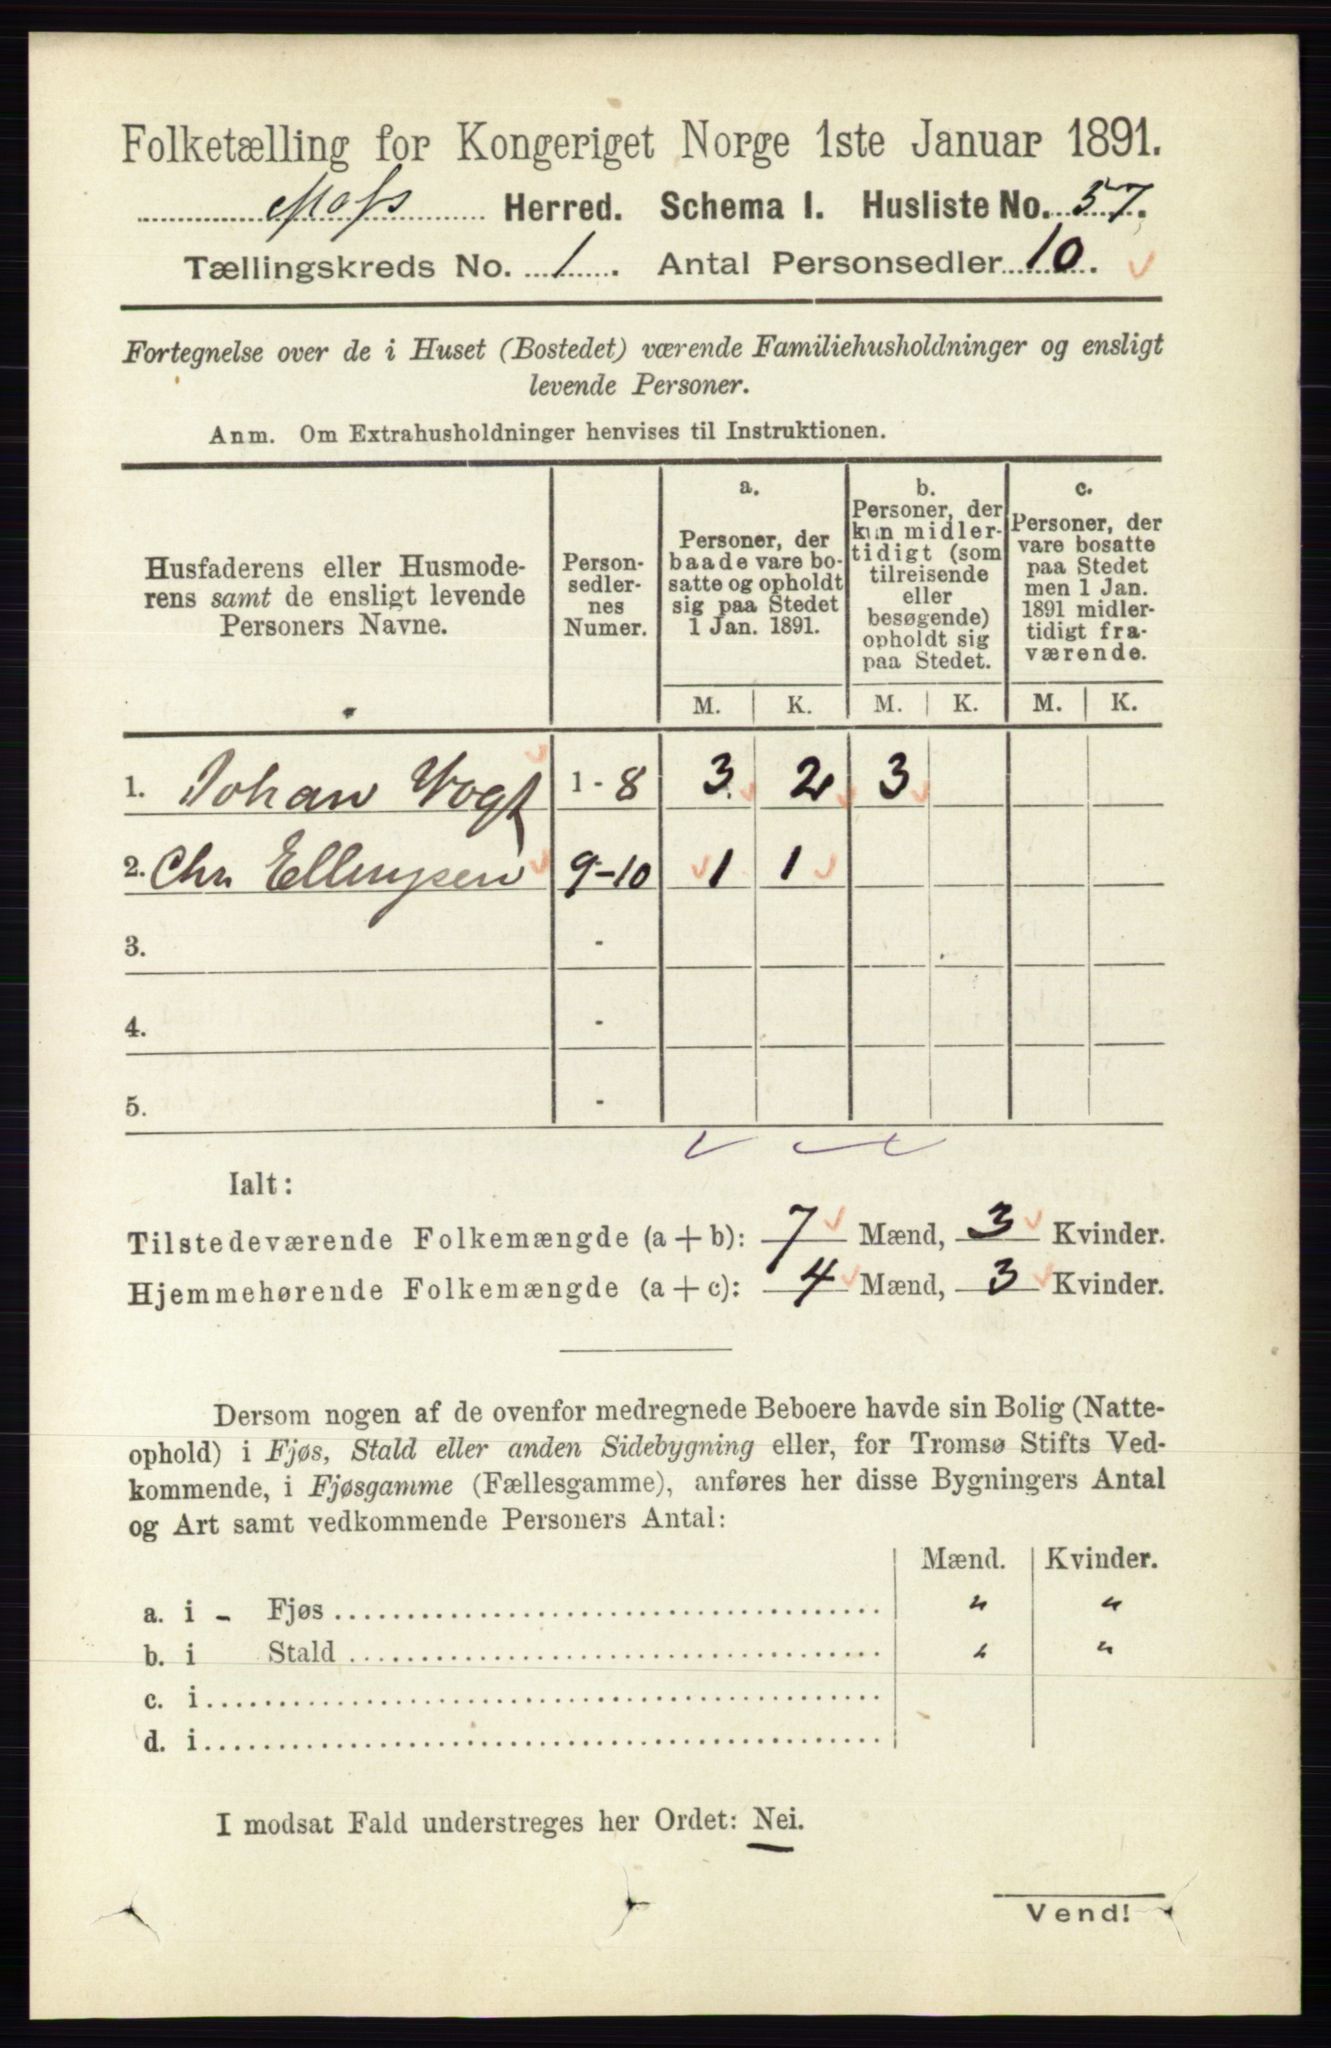 Folketælling for Kongeriget Norge 1ste Januar 1891.
Moss Herred. Schema I. Husliste No. 57.
Tællingskreds No. 1. Antal Personsedler 10.
Fortegnelse over de i Huset (Bostedet) værende Familiehusholdninger og ensligt
levende Personer.
Anm. Om Extrahusholdninger henvises til Instruktionen.
Husfaderens eller Husmode-
rens samt de ensligt levende
Personers Navne.
Person-
sedler-
nes
Numer.
a.
Personer, der
baade vare bo-
satte og opholdt
sig paa Stedet
1 Jan. 1891.
b.
Personer, der
kun midler-
tidigt (som
tilreisende
eller
besøgende)
opholdt sig
paa Stedet.
c.
Personer, der
vare bosatte
paa Stedet
men 1 Jan.
1891 midler-
tidigt fra-
værende.
M. K. M. K. M. K.
1. Johan Vogt 1 - 8 3 2 3
2. Chr. Ellingsen 9-10 1 1
3. -
4. -
5. -
Ialt:
Tilstedeværende Folkemængde (a + b): 7 Mænd, 3 Kvinder.
Hjemmehørende Folkemængde (a + c): 4 Mænd, 3 Kvinder.
Dersom nogen af de ovenfor medregnede Beboere havde sin Bolig (Natte-
ophold) i Fjøs, Stald eller anden Sidebygning eller, for Tromsø Stifts Ved-
kommende, i Fjøsgamme (Fællesgamme), anføres her disse Bygningers Antal
og Art samt vedkommende Personers Antal:
Mænd. Kvinder.
a. i - Fjøs " "
b. i Stald " "
c. i
d. i
I modsat Fald understreges her Ordet: Nei.
Vend!